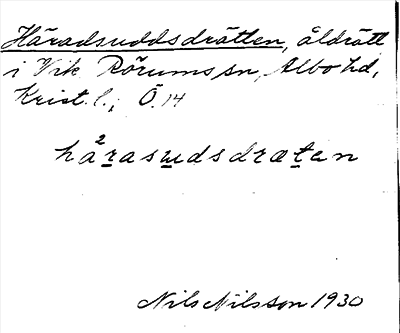 Häradsuddsdrätten, åldrätt
i Vik Rörums sn, Albo hd,
Krist. l.; Ö. 14
hä²rasudsdrætən
Nils Nilsson 1930